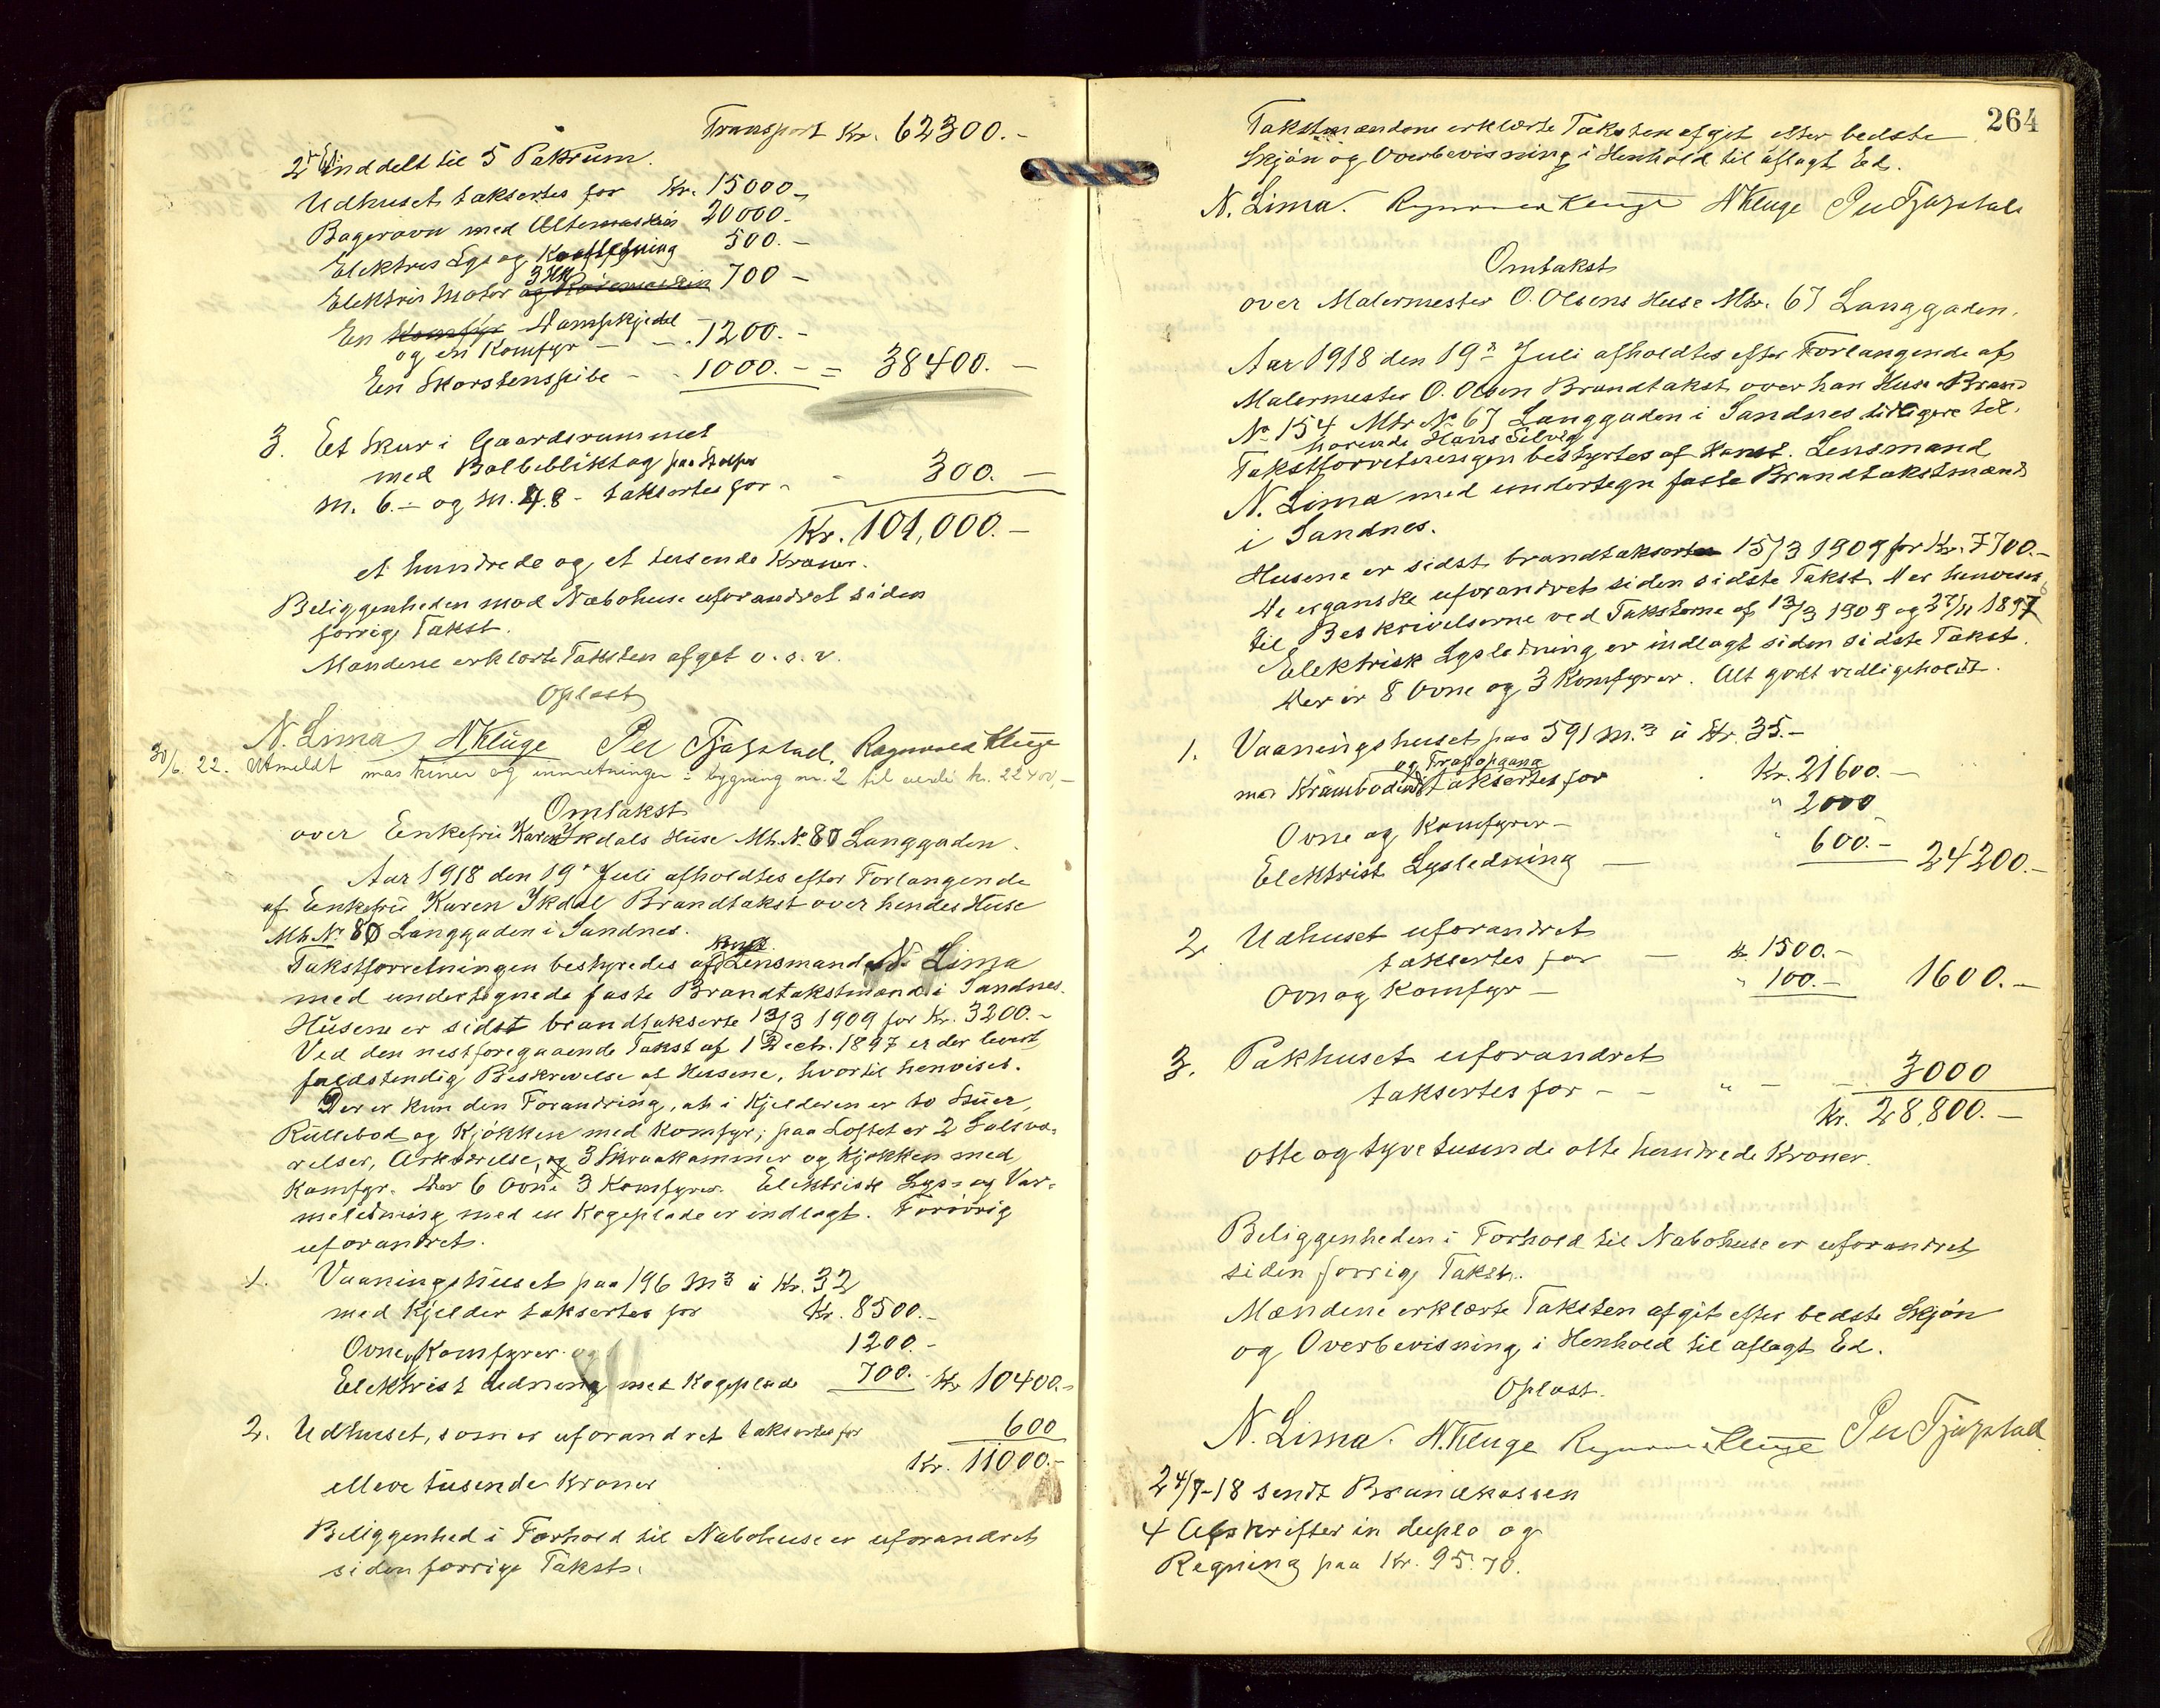 Transport Kr. 62300.-
2den Et. inddelt til 5 Pakrum.
Udhuset taksertes for Kr. 15000.-
Bagerovn med Eltemaskin 20000.-
Elektris Lys og Kraftledning 500.-
Elektris Motor 3 HK og Røremaskin 700 -
En Komfyr Dampkjedel
og en Komfyr - - 1200.-
En Skorstenspibe - - 1000.- = 38400.-
3. Et Skur i Gaardsrummet
med Bølgebliktag paa Stolper
M. 6.- og M. 4.8 - taksertes for - - 300.-
Kr. 101,000.-
et hundrede og et tusende Kroner.
Beliggenheden mod Nabohuse uforandret siden
forrige Takst.
Mændene erklærte Taksten afget o. s. v.
Oplæst
N. Lima N Kluge Per Tjågstad, Ragnvald Kluge
30/6. 22. Utmeldt maskiner og innretninger i bygning nr. 2 til verdi kr. 22400,-
Omtakst
over Enkefru Karen Ykdals Huse Mtr. No 80 Langgaden.
Aar 1918 den 19' Juli afholdtes efter Forlangende
af Enkefru Karen Ykdal Brandtakst over hendes Huse
Mtr. No 80 Langgaden i Sandnes.
Takstforretningen bestyredes af Konst. Lensmand N. Lima
med undertegnede faste Brandtakstmænd i Sandnes.
Husene er sidst brandtakserte 13/3 1909 for Kr. 3200.-
Ved den nestforegaaende Takst af 1 Dectr. 1897 er der levert
fuldstendig Beskrivelse af Husene, hvortil henvises.
Der er kun den Forandring, at i Kjelderen er to Stuer,
Rullebod og Kjøkken med Komfyr; paa Loftet er 2 Salsvæ-
relser, Arkværelse, og 3 Skraakammer og Kjøkken med
Komfyr. Der 6 Ovne 3 Komfyrer. Elektrisk Lys- og Var-
meledning med en Kogeplade er indlagt. Forøvrig
uforandret.
1. Vaaningshuset paa 196 M3 à Kr. 32
med Kjelder taksertes for Kr. 8500.-
Ovne og Komfyrer 1200.-
Elektrist Ledning med Kogeplade 700.- Kr 10400.-
2. Udhuset, som er uforandret taksertes for 600
Kr. 11000.-
elleve tusende Kroner
Beliggenhed i Forhold til Nabohuse er uforandret
siden forrige Takst.
264
Takstmændene erklærte Taksten afgit efter bedste
Skjøn og Overbevisning i Henhold til aflagt Ed.
N. Lima. Ragnvald Kluge N Kluge Per Tjågstad
Omtakst
over Malermester O. Olsens Huse Mtr. 67 Langgaden.
Aar 1918 den 19de Juli afholdtes efter Forlangende af
Malermester O. Olsen Brandtakst over han Huse Brand
No 154 Mtr No 67 Langgaden i Sandnes tidligere til-
hørende Hans Selvig
Takstforretningen bestyrtes af Konst. Lensmand
N. Lima med undertegn faste Brandtakstmænd
i Sandnes.
Husene er sidst brandtaksert 15/3 1909 for Kr. 7700.-
De er ganske uforandret siden sidste Takst. Der henvises
til Beskrivelserne ved Taksterne af 13/3 1909 og 27/11 1897
Elektrisk Lysledning er indlagt siden sidste Takst.
Der er 8 Ovne og 3 Komfyrer. Alt godt vedligeholdt.
1. Vaaningshuset paa 591 M.3 à Kr. 35.-
og Trapopgang
med Krambodind taksertes for Kr. 21600.-
Ovne og Komfyrer - " 2000
Elektrist Lysledning - " 600.- 24200.-
2. Udhuset uforandret
taksertes for - Kr. 1500.-
Ovn og Komfyr - " 100.- 1600.-
3. Pakhuset uforandret
taksertes for - - " - - 3000
Kr. 28,800.-
otte og tyve tusende otte hundrede Kroner.
Beliggenheden i Forhold til Nabohuse er uforandret
siden forrige Takst.
Mændene erklærte Taksten afgit efter bedste Skjøn
og Overbevisning i Henhold til aflagt Ed.
Oplæst.
N. Lima. N. Kluge Ragnvald Kluge Per Tjågstad
24/7-18 sendt Brandkassen
4 Afskrifter in duplo og
Regning paa Kr. 95.70.